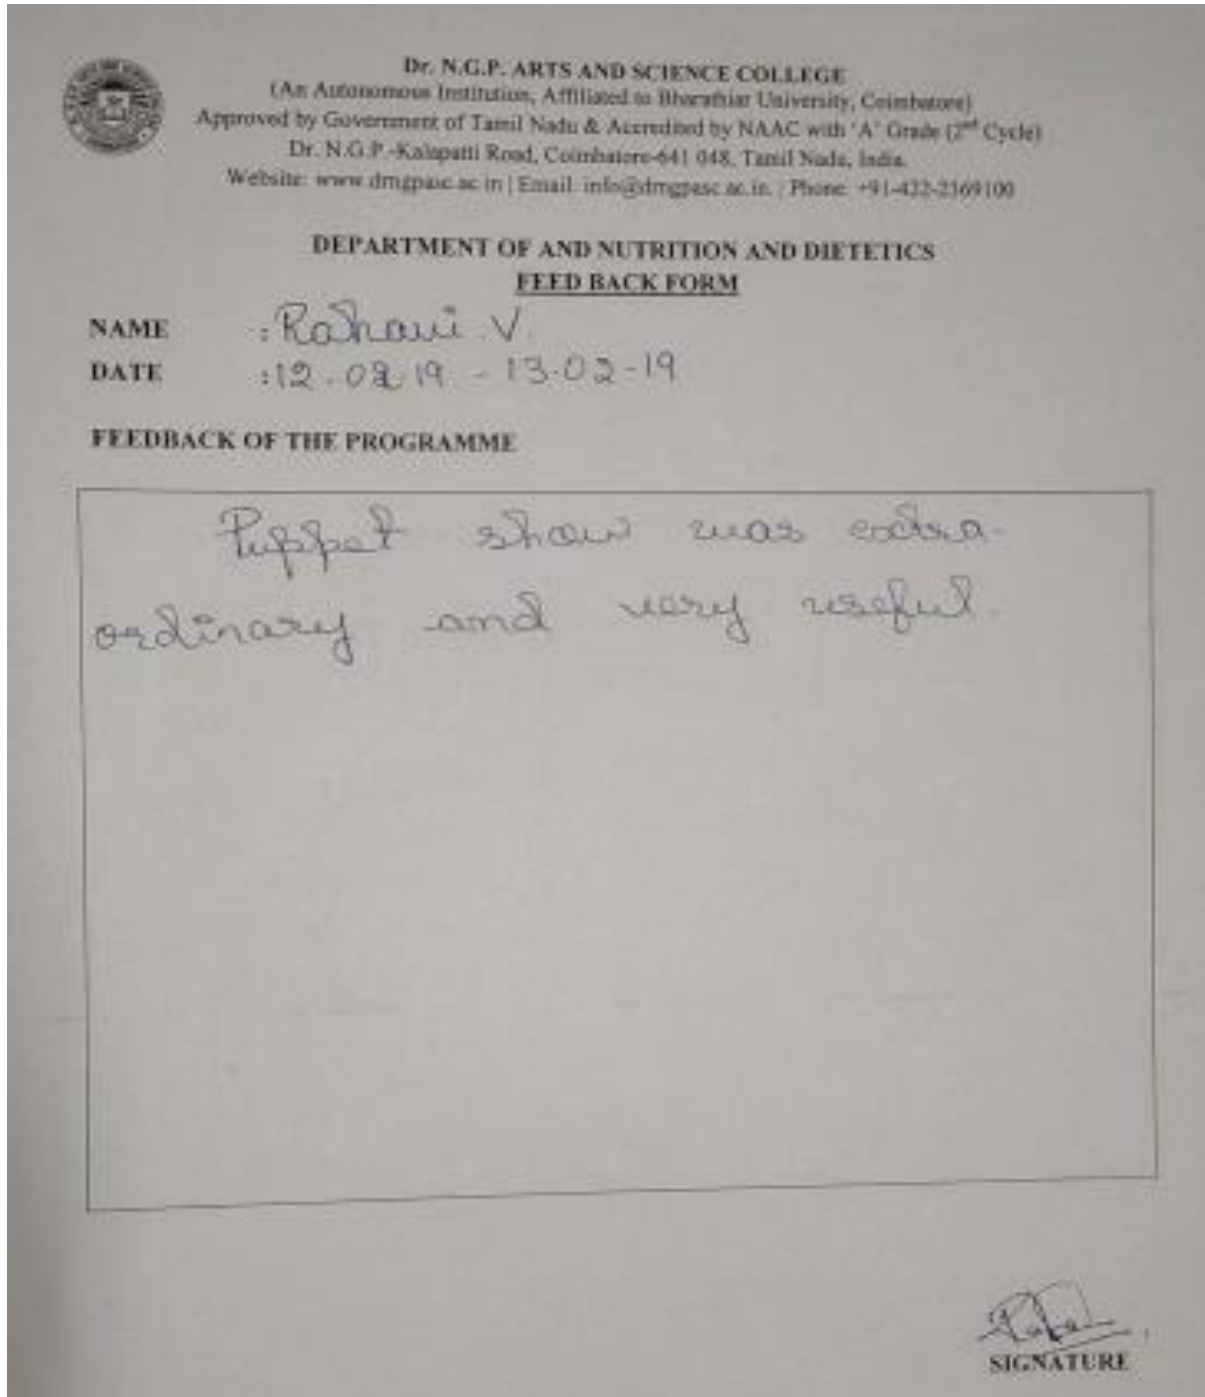 Dr. N.G.P. ARTS AND SCIENCE COLLEGE
(An Autonomous Institution, Affiliated to Bharathiar University, Coimbatore)
Approved by Government of Tamil Nadu & Accredited by NAAC with 'A' Grade (2nd Cycle)
Dr. N.G.P.-Kalapatti Road, Coimbatore-641 048, Tamil Nadu, India.
Website: www.drngpasc.ac.in | Email: info@drngpasc.ac.in. | Phone: +91-422-2369100
DEPARTMENT OF AND NUTRITION AND DIETETICS
FEED BACK FORM
NAME : V.
DATE :12.02.19 - 13.02-19
FEEDBACK OF THE PROGRAMME
Puppet show was extra-
ordinary and very useful.
SIGNATURE